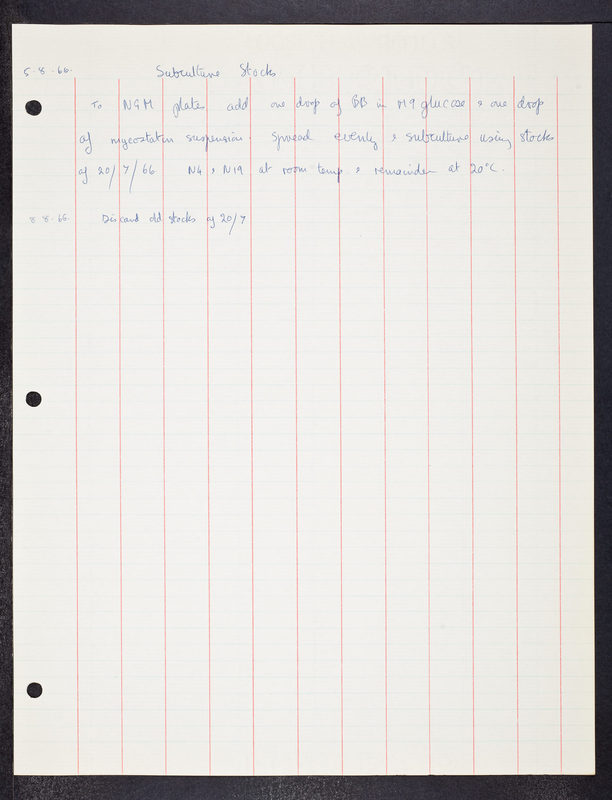 5·8·66. Subculture Stocks
To NGM plates add one drop of BB in M9 glucose & one drop
of mycostatin suspension. Spread evenly & subculture using stocks
of 20/7/66 N4 & N19 at room temp. & remainder at 20°C.
8·8·66. Discard old stocks of 20/7